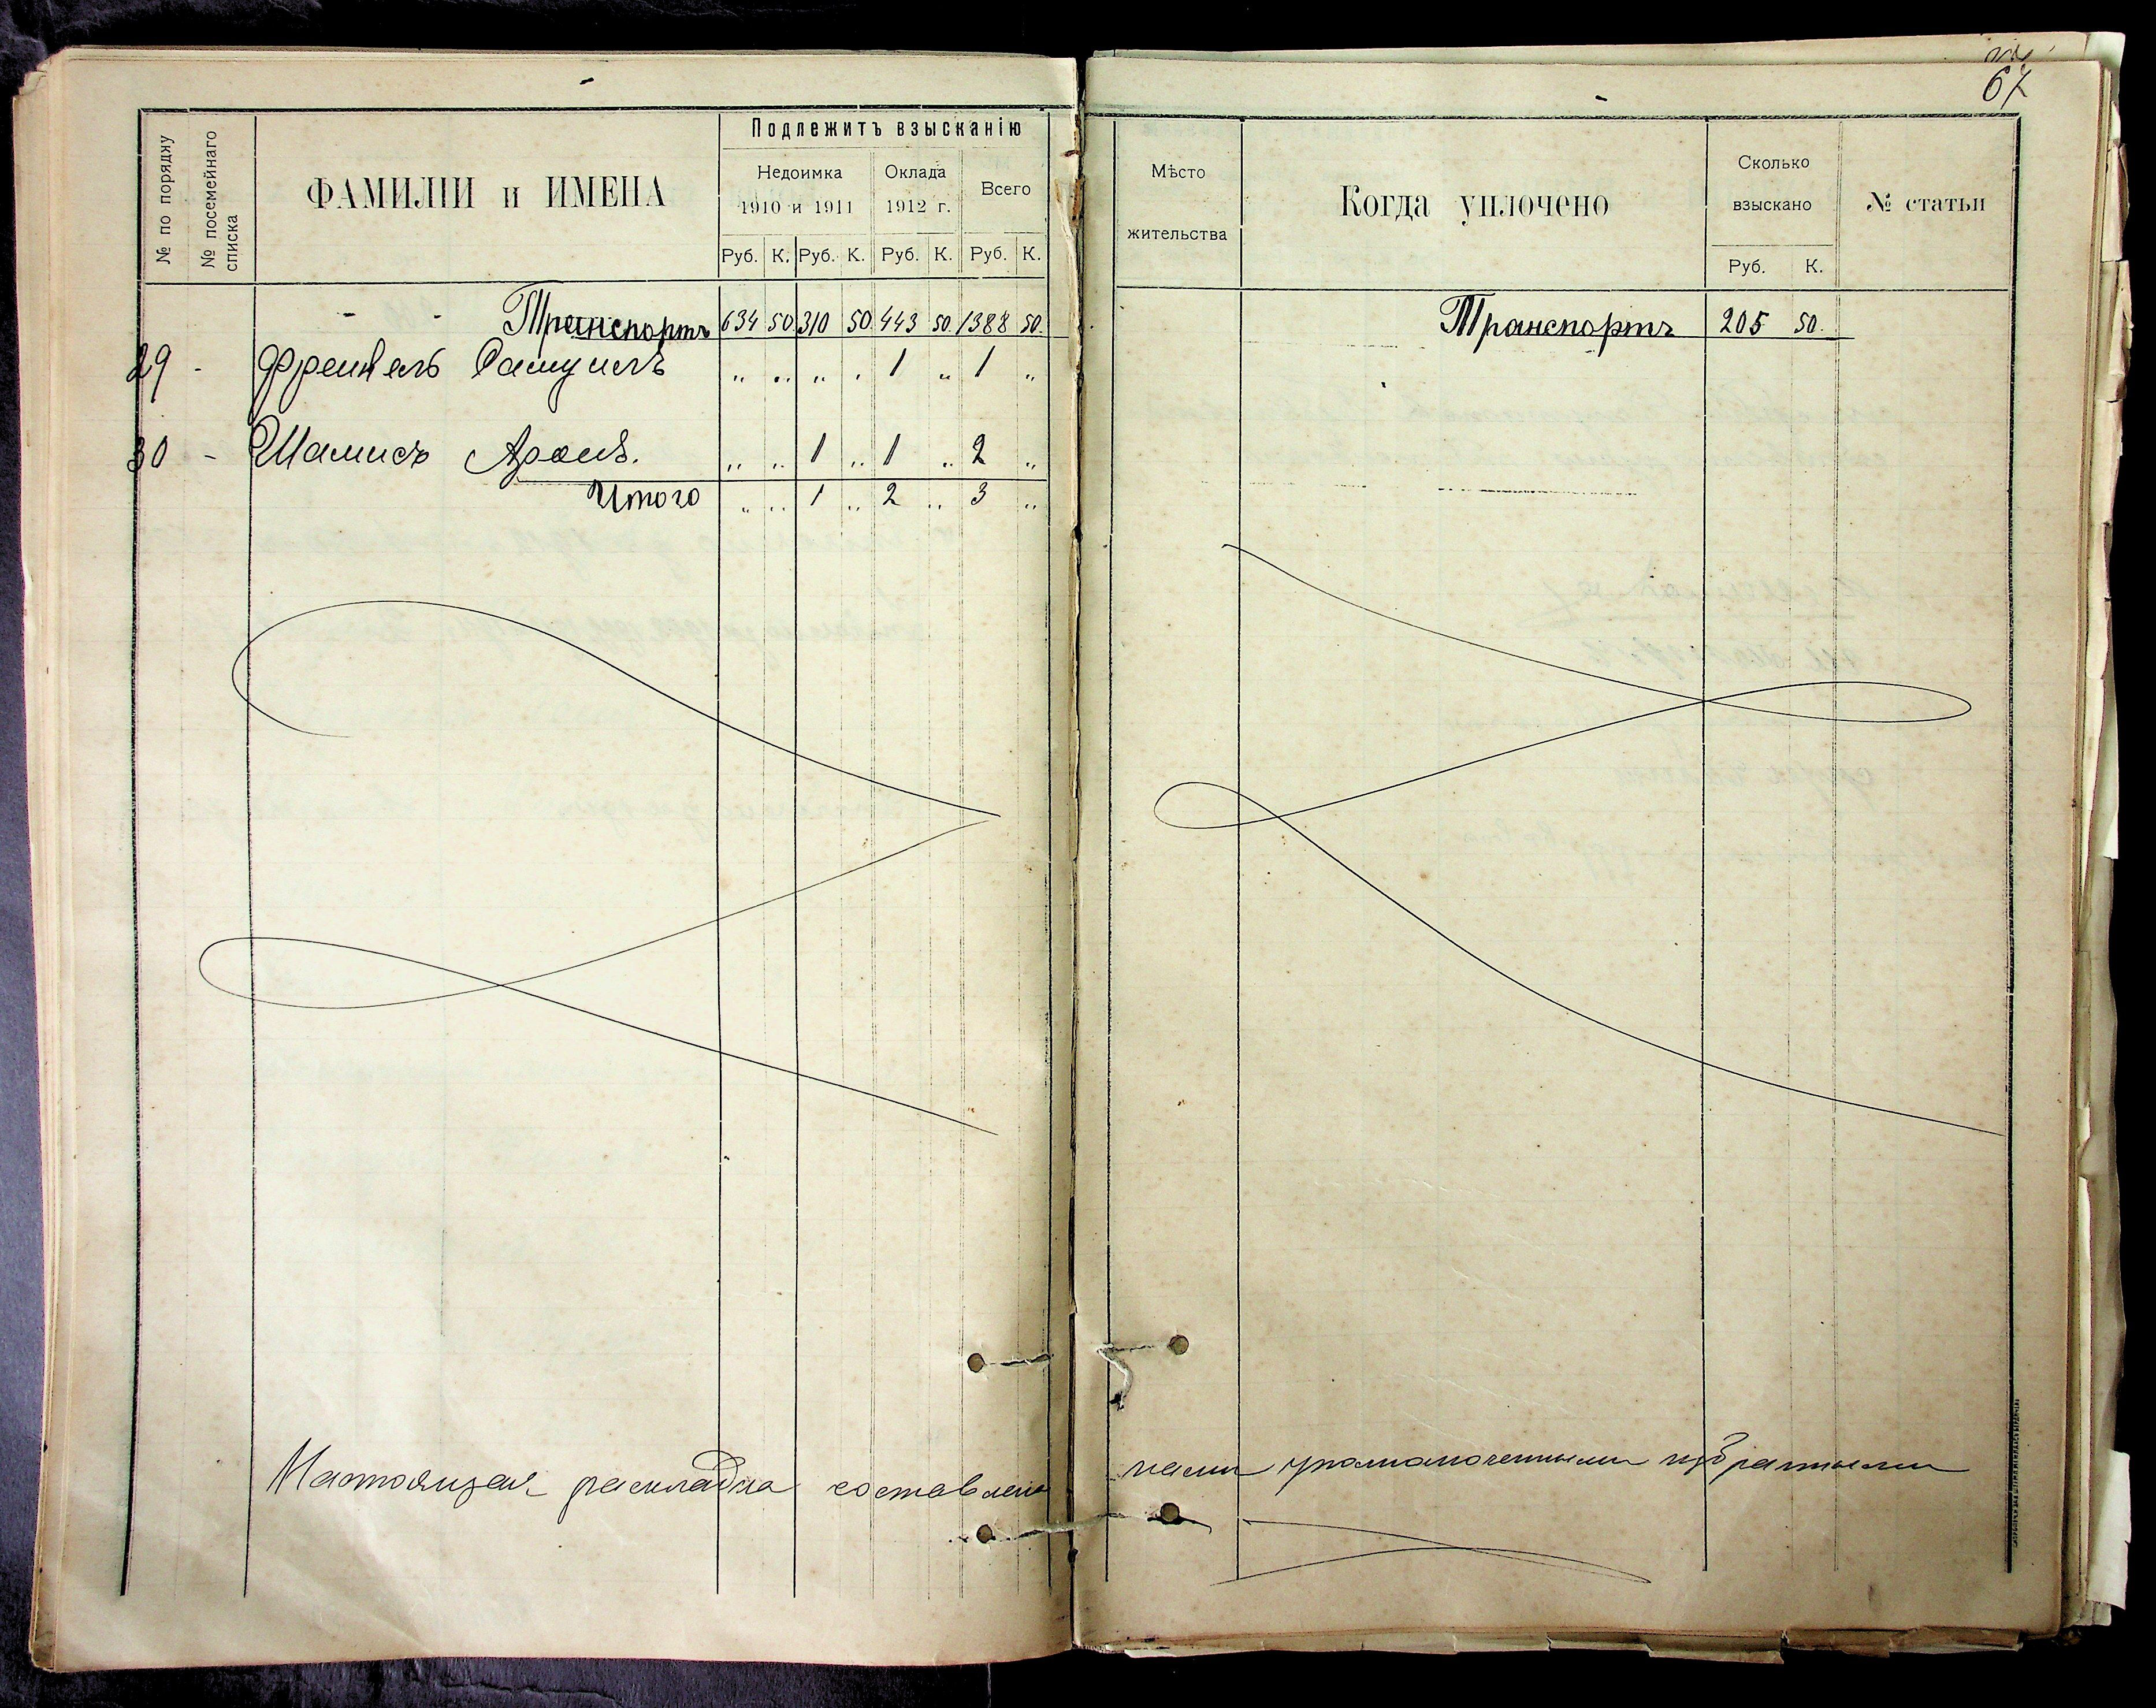 67
№ по порядку
№ посемейнаго списка
ФАМИЛІИ и ИМЕНА
Подлежитъ взысканію
Недоимка
1910 и 1911
Оклада
1912 г.
Всего
Руб. К. Руб. К. Руб. К. Руб. К.
Транспортъ 634 50 310 50 443 50 1388 50
29 - Френкель Самуилъ „ „ „ „ 1 „ 1 „
30 - Шамисъ Аронъ. „ „ 1 „ 1 „ 2 „
Итого „ „ 1 „ 2 „ 3 „
Настоящая раскладка составлена
Мѣсто
жительства
Когда уплочено
Сколько
взыскано
Руб. К.
№ статьи
Транспортъ 205 50.
нами уполномоченными избранными